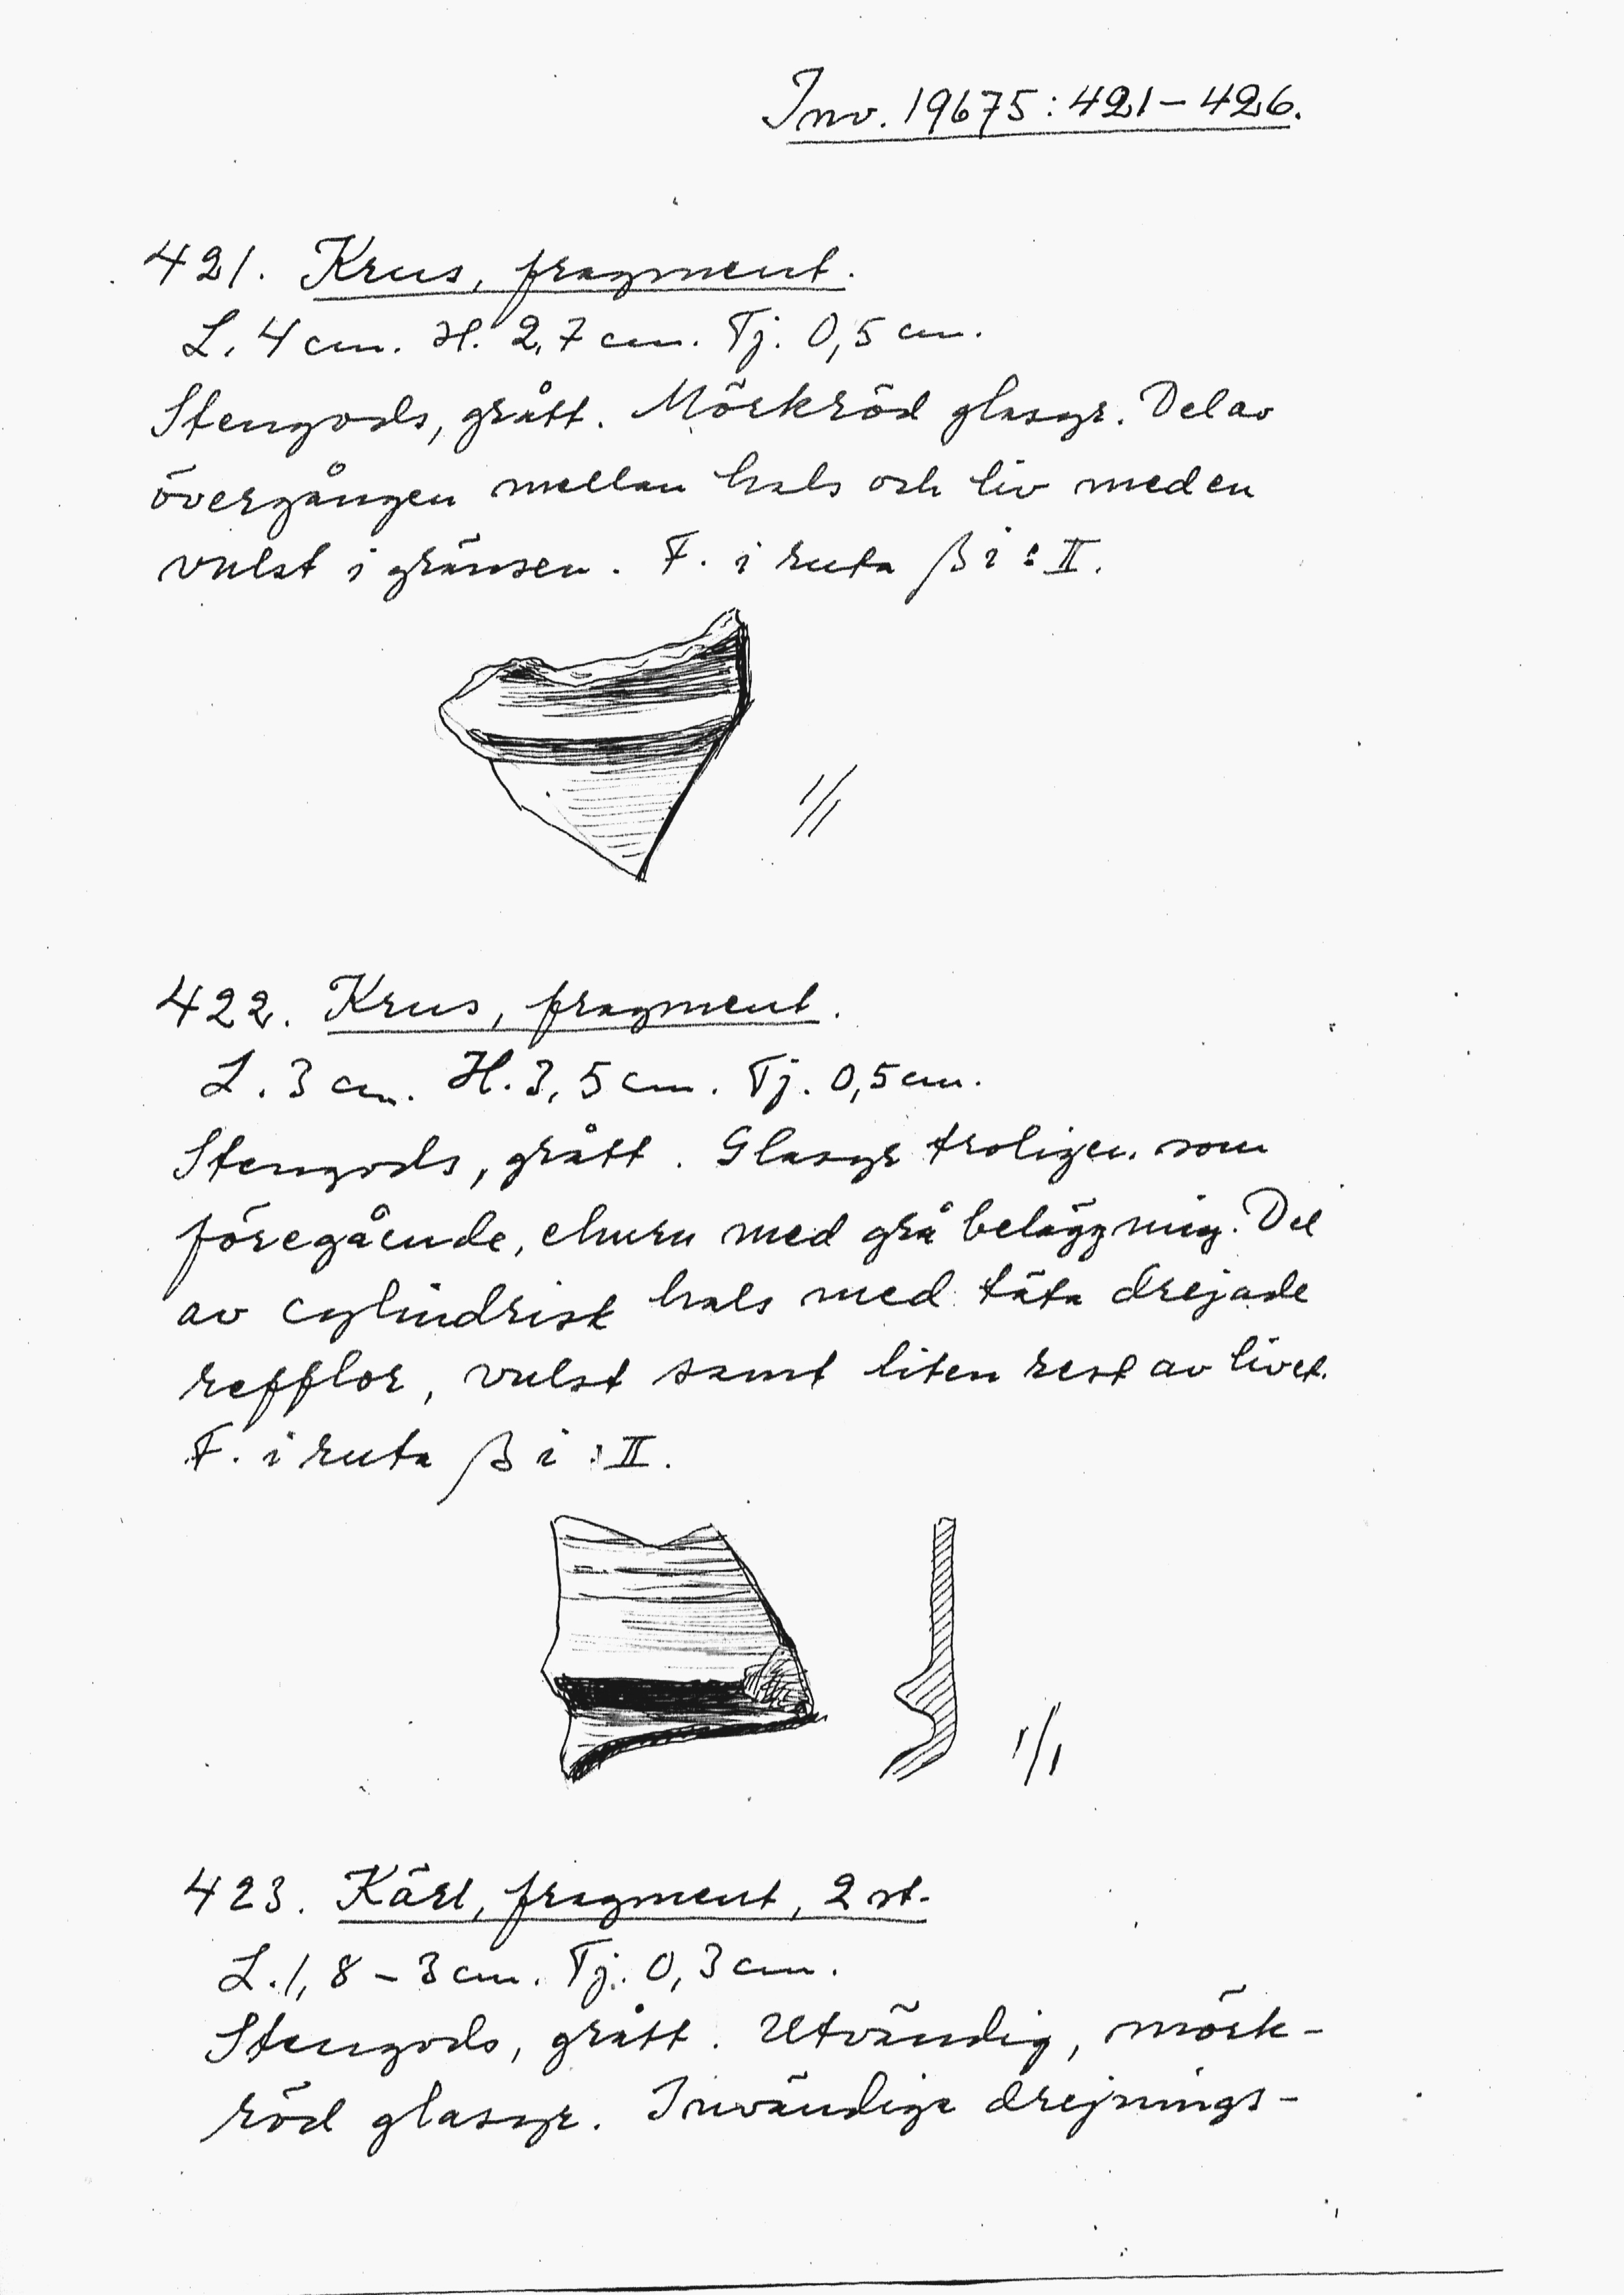 Inv. 19675:421–426.
421. Krus, fragment.
L. 4 cm. H. 2,7 cm. Tj. 0,5 cm.
Stengods, grått. Mörkröd glasyr. Del av
övergången mellan hals och liv med en
vulst i gränsen. F. i ruta β i : II.
1/1
422. Krus, fragment.
L. 3 cm. H. 3,5 cm. Tj. 0,5 cm.
Stengods, grått. Glasyr troligen som
föregående, ehuru med grå beläggning. Del
av cylindrisk hals med täta drejade
refflor, vulst samt liten rest av livet.
F. i ruta β i : II.
1/1
423. Kärl, fragment, 2 st.
L. 1,8 – 3 cm. Tj. 0,3 cm.
Stengods, grått. Utvändig, mörk-
röd glasyr. Invändiga drejnings-